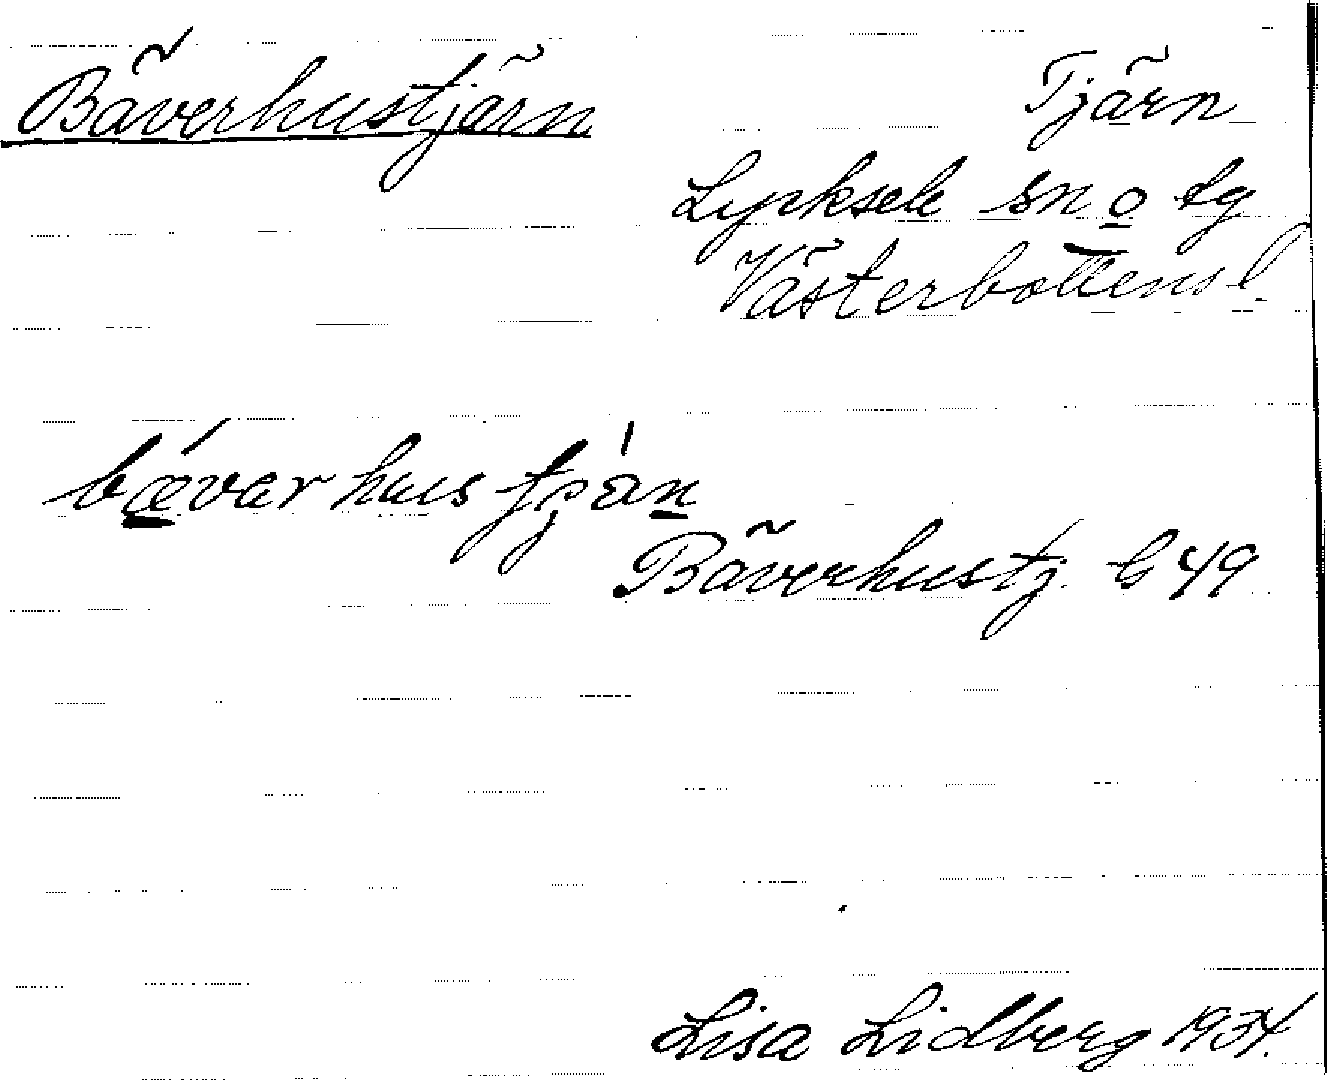 Bäverhustjärn
Tjärn
Lycksele sn o tg
Västerbottensl.
bævar hus tjän
Bäverhustj. G 49
Lisa Lidberg 1934.